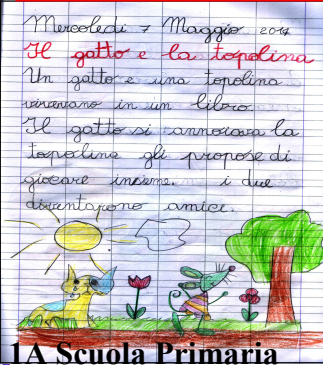 Mercoledì 7 Maggio 2014
Il gatto e la topolina
Un gatto e una topolina
vivevano in un libro.
Il gatto si annoiava la
topolina gli propose di
giocare insieme. i due
diventarono amici.
1A Scuola Primaria